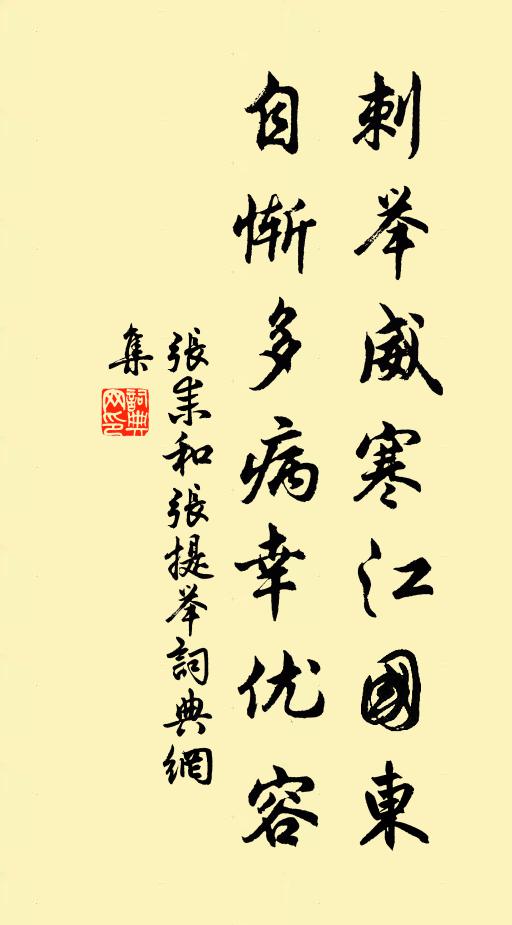 刺举威寒江國東
自惭多病幸优容
張耒和張提举詞典網
集
詞典網印